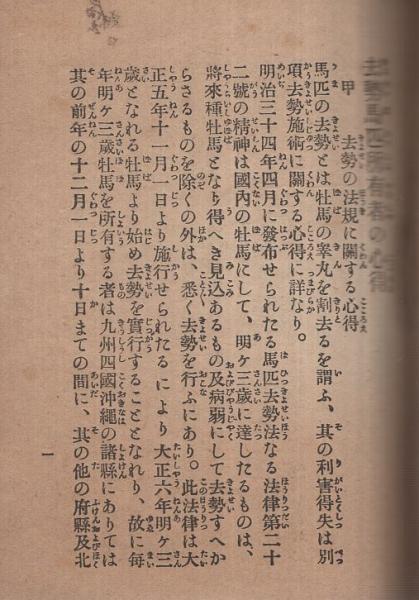 去勢馬匹所有者の心得
甲　去勢の法規に關する心得
馬匹の去勢とは牡馬の睾丸を割去るを謂ふ、其の利害得失は別
項去勢施術に關する心得に詳なり。
明治三十四年四月に發布せられたる馬匹去勢法なる法律第二十
二號の精神は國內の牡馬にして、明ヶ三歲に達したるものは、
將來種牡馬となり得へき見込あるもの及病弱にして去勢すへか
らさるものを除くの外は、悉く去勢を行ふにあり。此法律は大
正五年十一月一日より施行せられたるにより大正六年明ヶ三
歲となれる牡馬より始め去勢を實行することとなれり、故に每
年明ヶ三歲牡馬を所有する者は九州四國沖繩の諸縣にありては
其の前年の十二月一日より十日までの間に、其の他の府縣及北
一